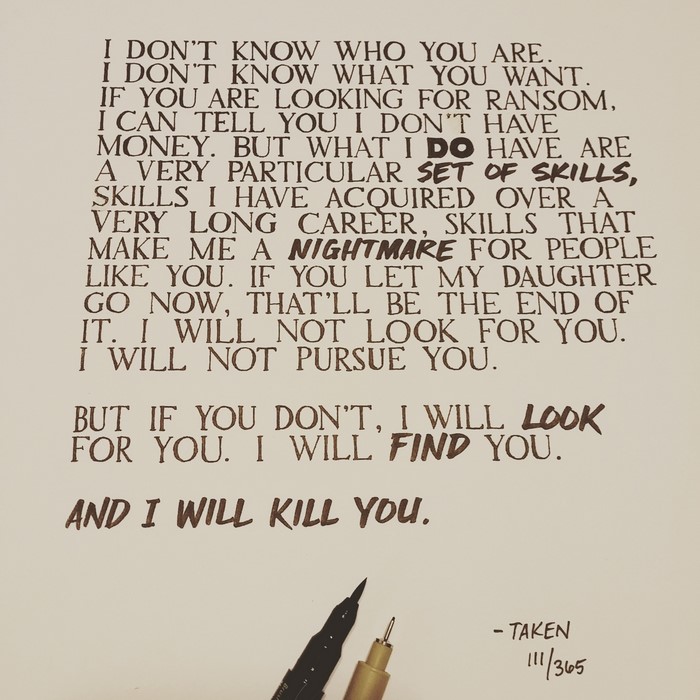 I DON'T KNOW WHO YOU ARE.
I DON'T KNOW WHAT YOU WANT.
IF YOU ARE LOOKING FOR RANSOM,
I CAN TELL YOU I DON'T HAVE
MONEY. BUT WHAT I DO HAVE ARE
A VERY PARTICULAR SET OF SKILLS,
SKILLS I HAVE ACQUIRED OVER A
VERY LONG CAREER, SKILLS THAT
MAKE ME A NIGHTMARE FOR PEOPLE
LIKE YOU. IF YOU LET MY DAUGHTER
GO NOW, THAT'LL BE THE END OF
IT. I WILL NOT LOOK FOR YOU.
I WILL NOT PURSUE YOU.
BUT IF YOU DON'T, I WILL LOOK
FOR YOU. I WILL FIND YOU.
AND I WILL KILL YOU.
- TAKEN
111/365